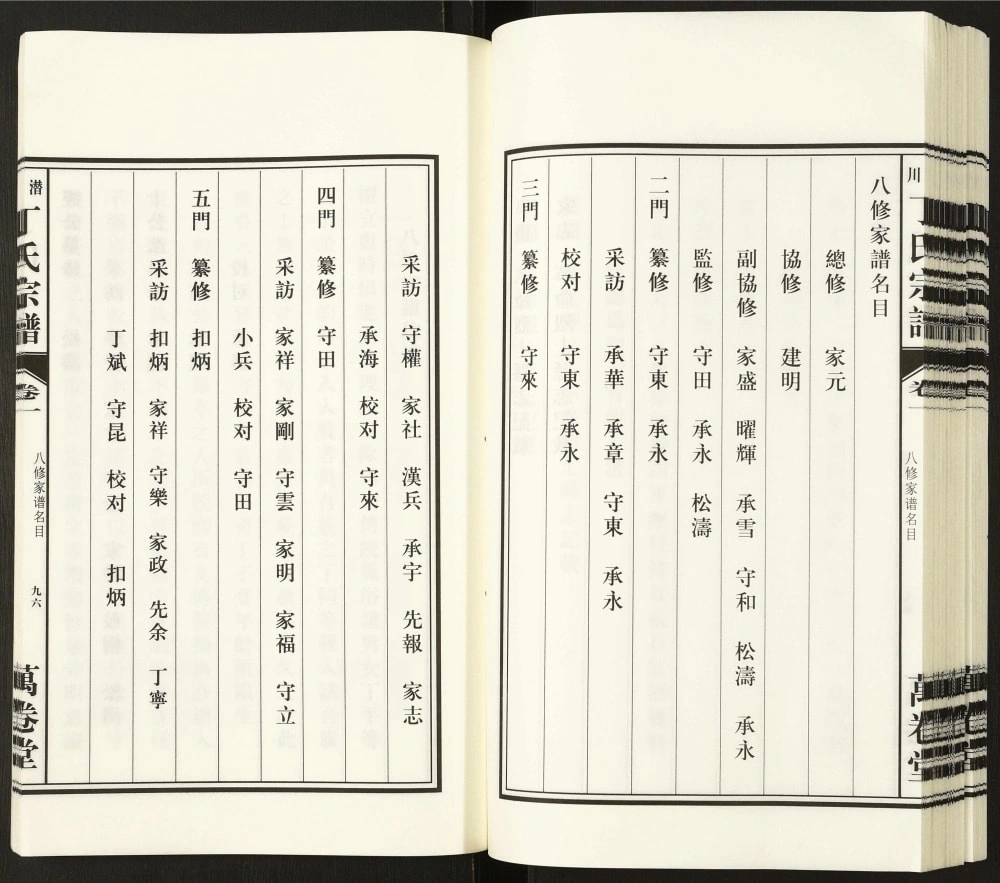 八修家譜名目
總修 家元
協修 建明
副協修 家盛 曜輝 承雪 守和 松濤 承永
監修 守田 承永 松濤
二門 纂修 守東 承永
采訪 承華 承章 守東 承永
校对 守東 承永
三門 纂修 守來
采訪 守權 家社 漢兵 承宇 先報 家志
承海 校对 守來
四門 纂修 守田
采訪 家祥 家剛 守雲 家明 家福 守立
小兵 校对 守田
五門 纂修 扣炳
采訪 扣炳 家祥 守樂 家政 先余 丁寧
丁斌 守昆 校对 扣炳
潜 丁氏宗譜 卷一 八修家谱名目 九六 萬卷堂
川 丁氏宗譜 卷一 八修家谱名目 萬卷堂